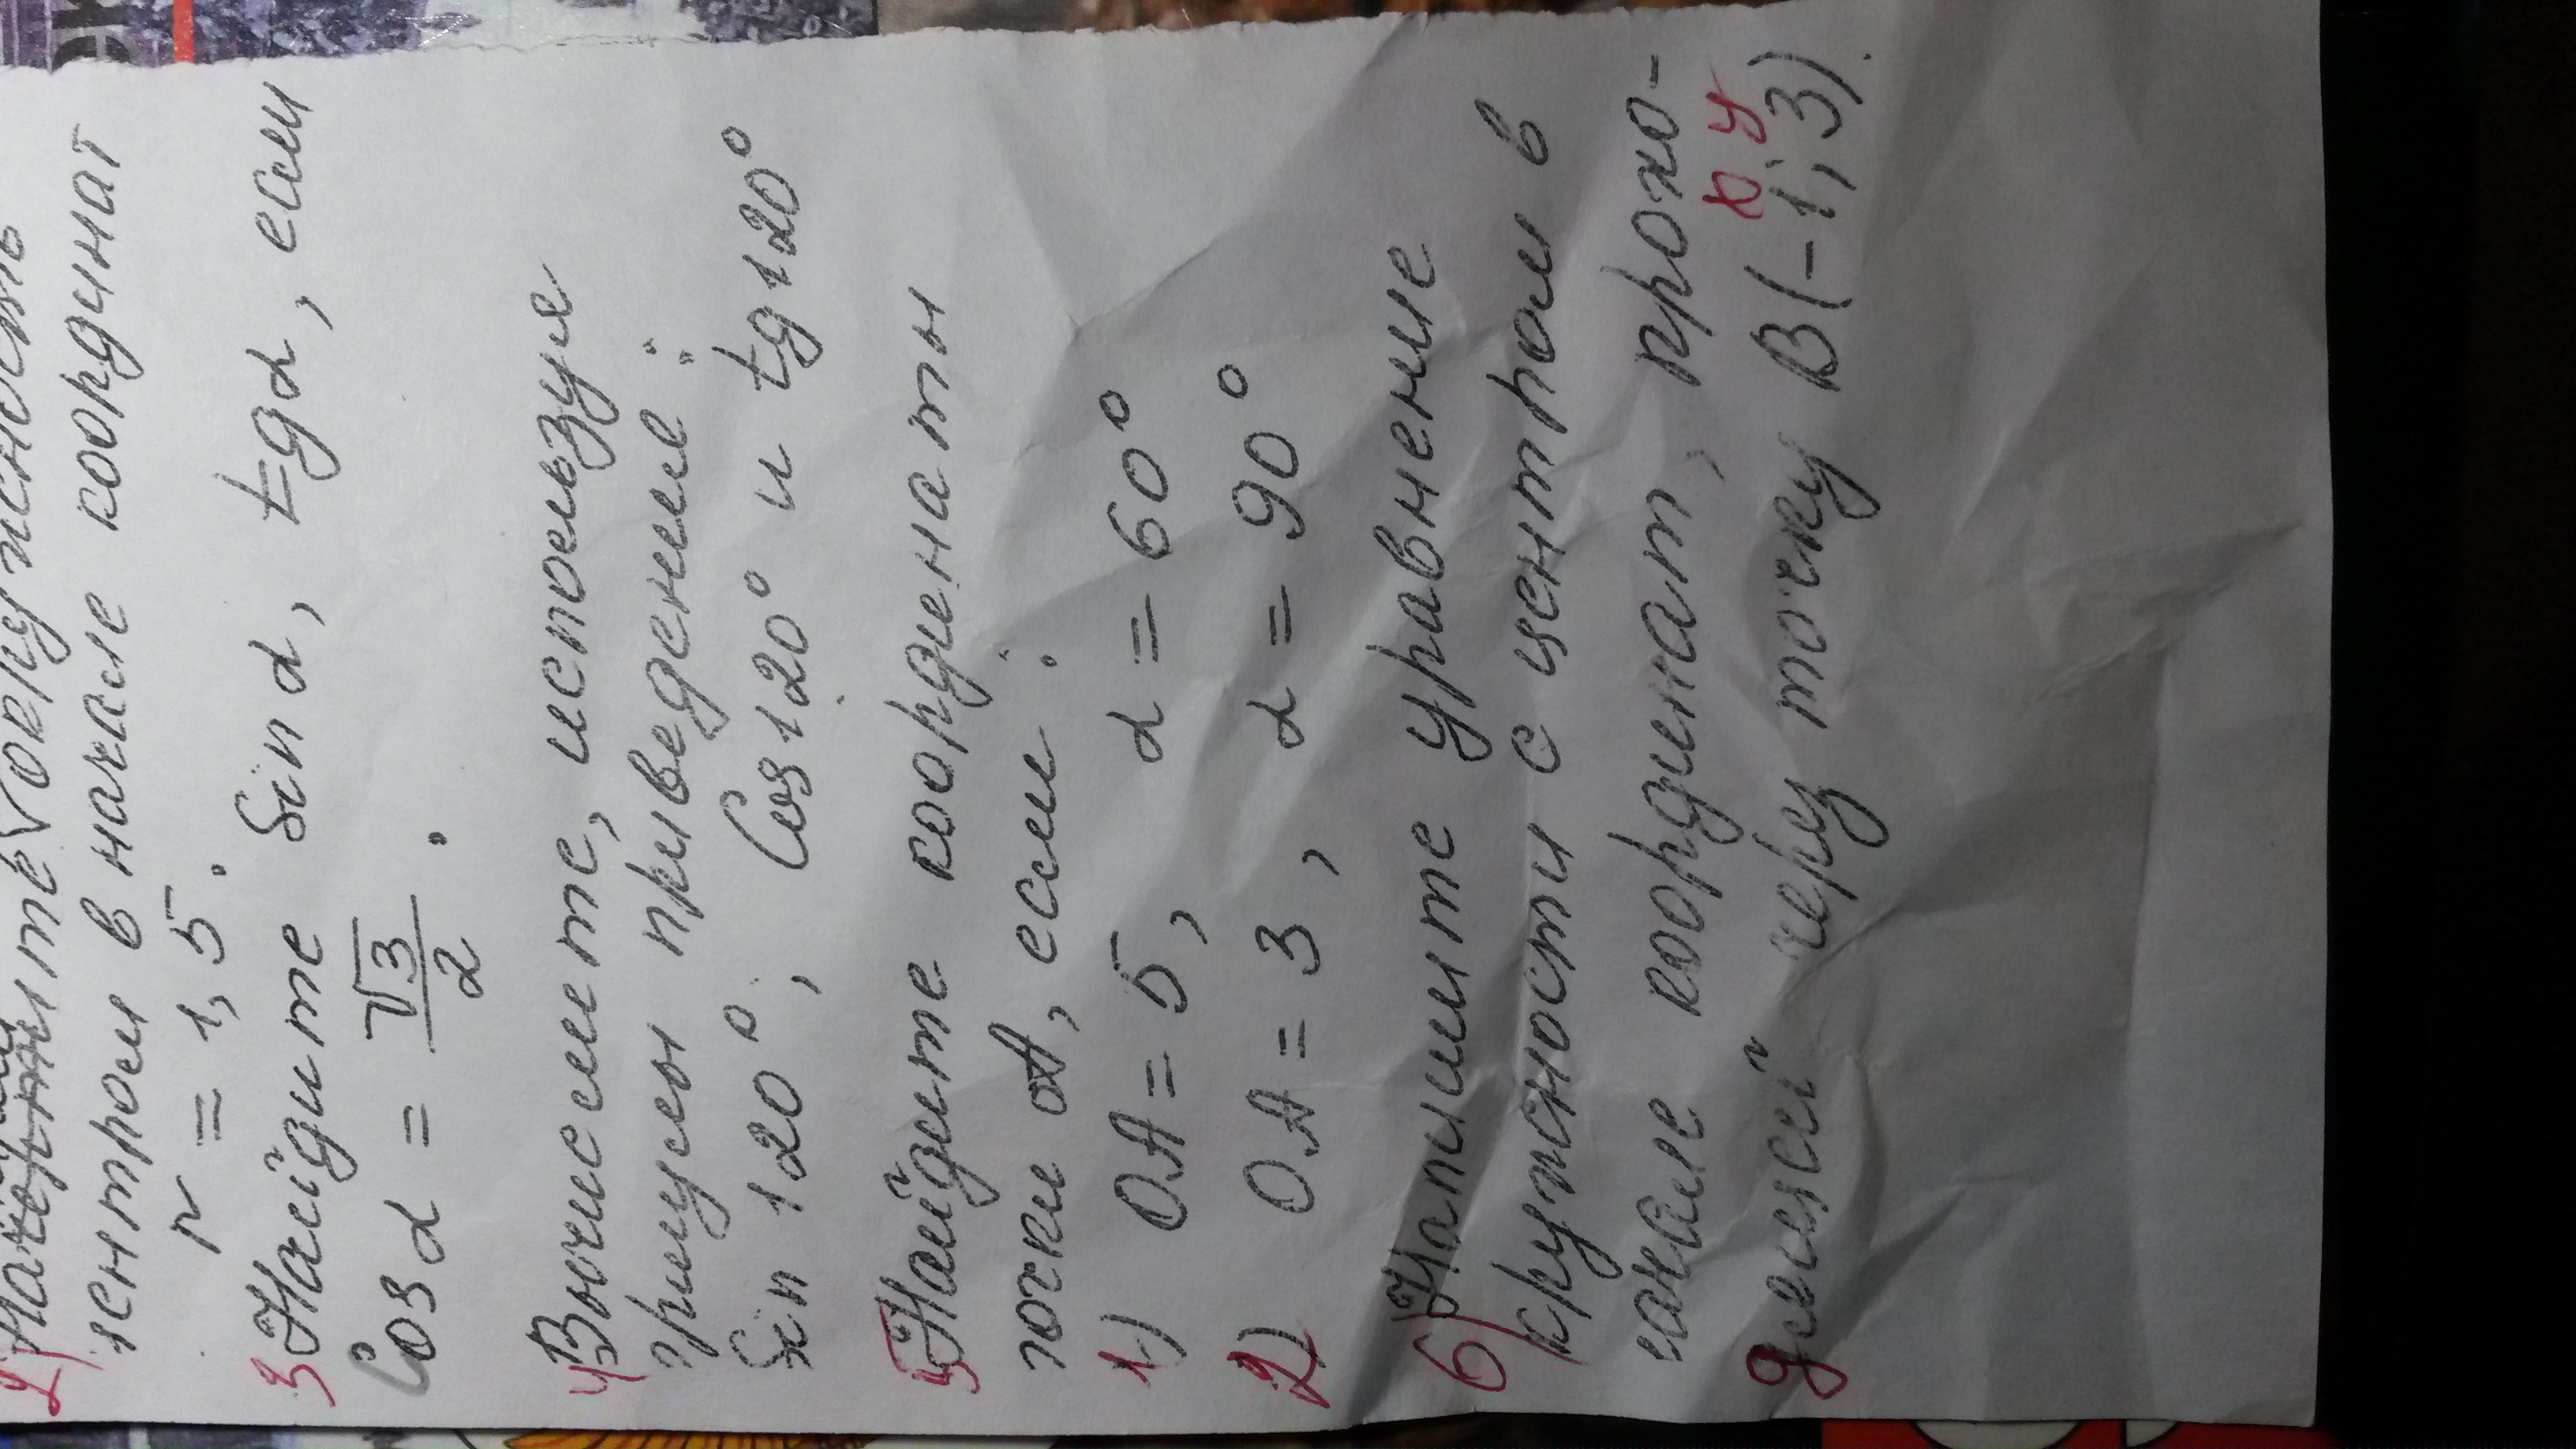 2) Начертите окружность
центром в начале координат
r = 1,5.
3 Найдите Sin α, tg α, если
Cos α = √3/2.
4) Вычислите, используе
приусы приведений:
Sin 120°, Cos 120° и tg 120°
5) Найдите координаты
точки А, если:
1) OA = 5, α = 60°
2) OA = 3, α = 90°
6) Напишите уравнение
окружности с центром в
начале координат, прохо-
x y
дящей через точку B(-1; 3)